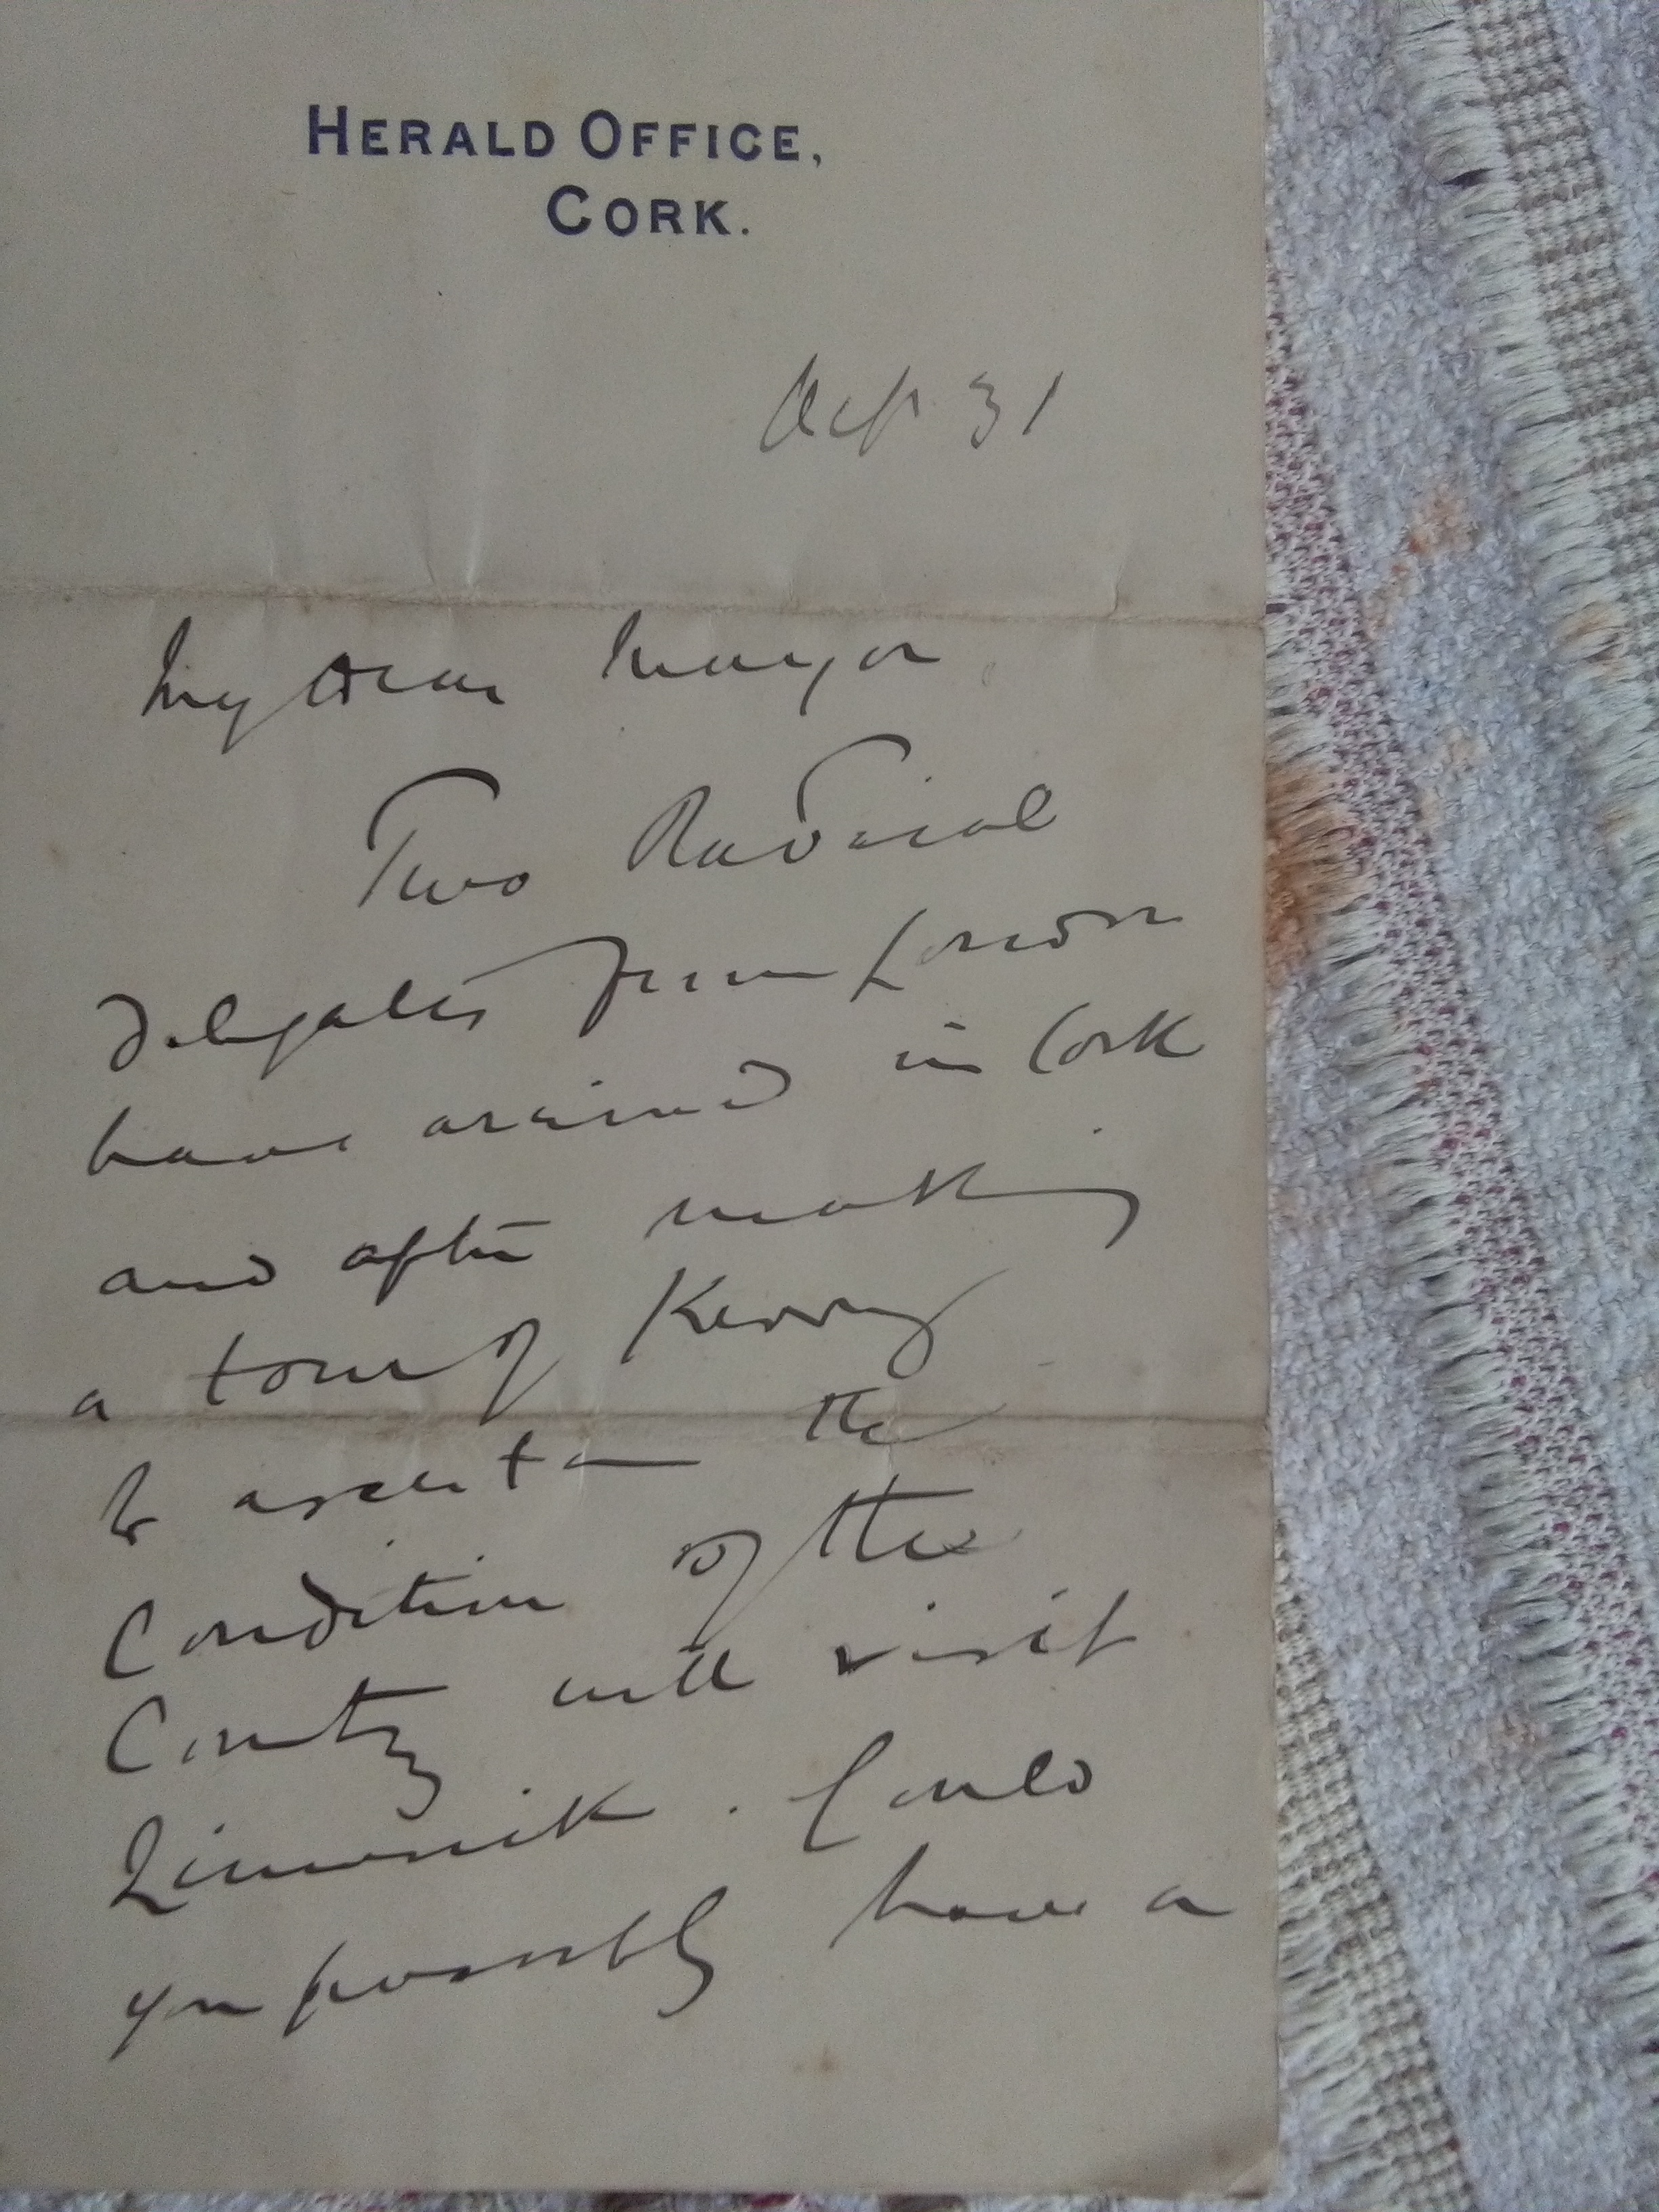 HERALD OFFICE,
CORK.
31
My dear Mayor
Two Radical
delegates from London
have arrived in Cork
and after making
a tour of Kerry
to ascertain the
Condition of the
County will visit
Limerick. Could
you possibly have a